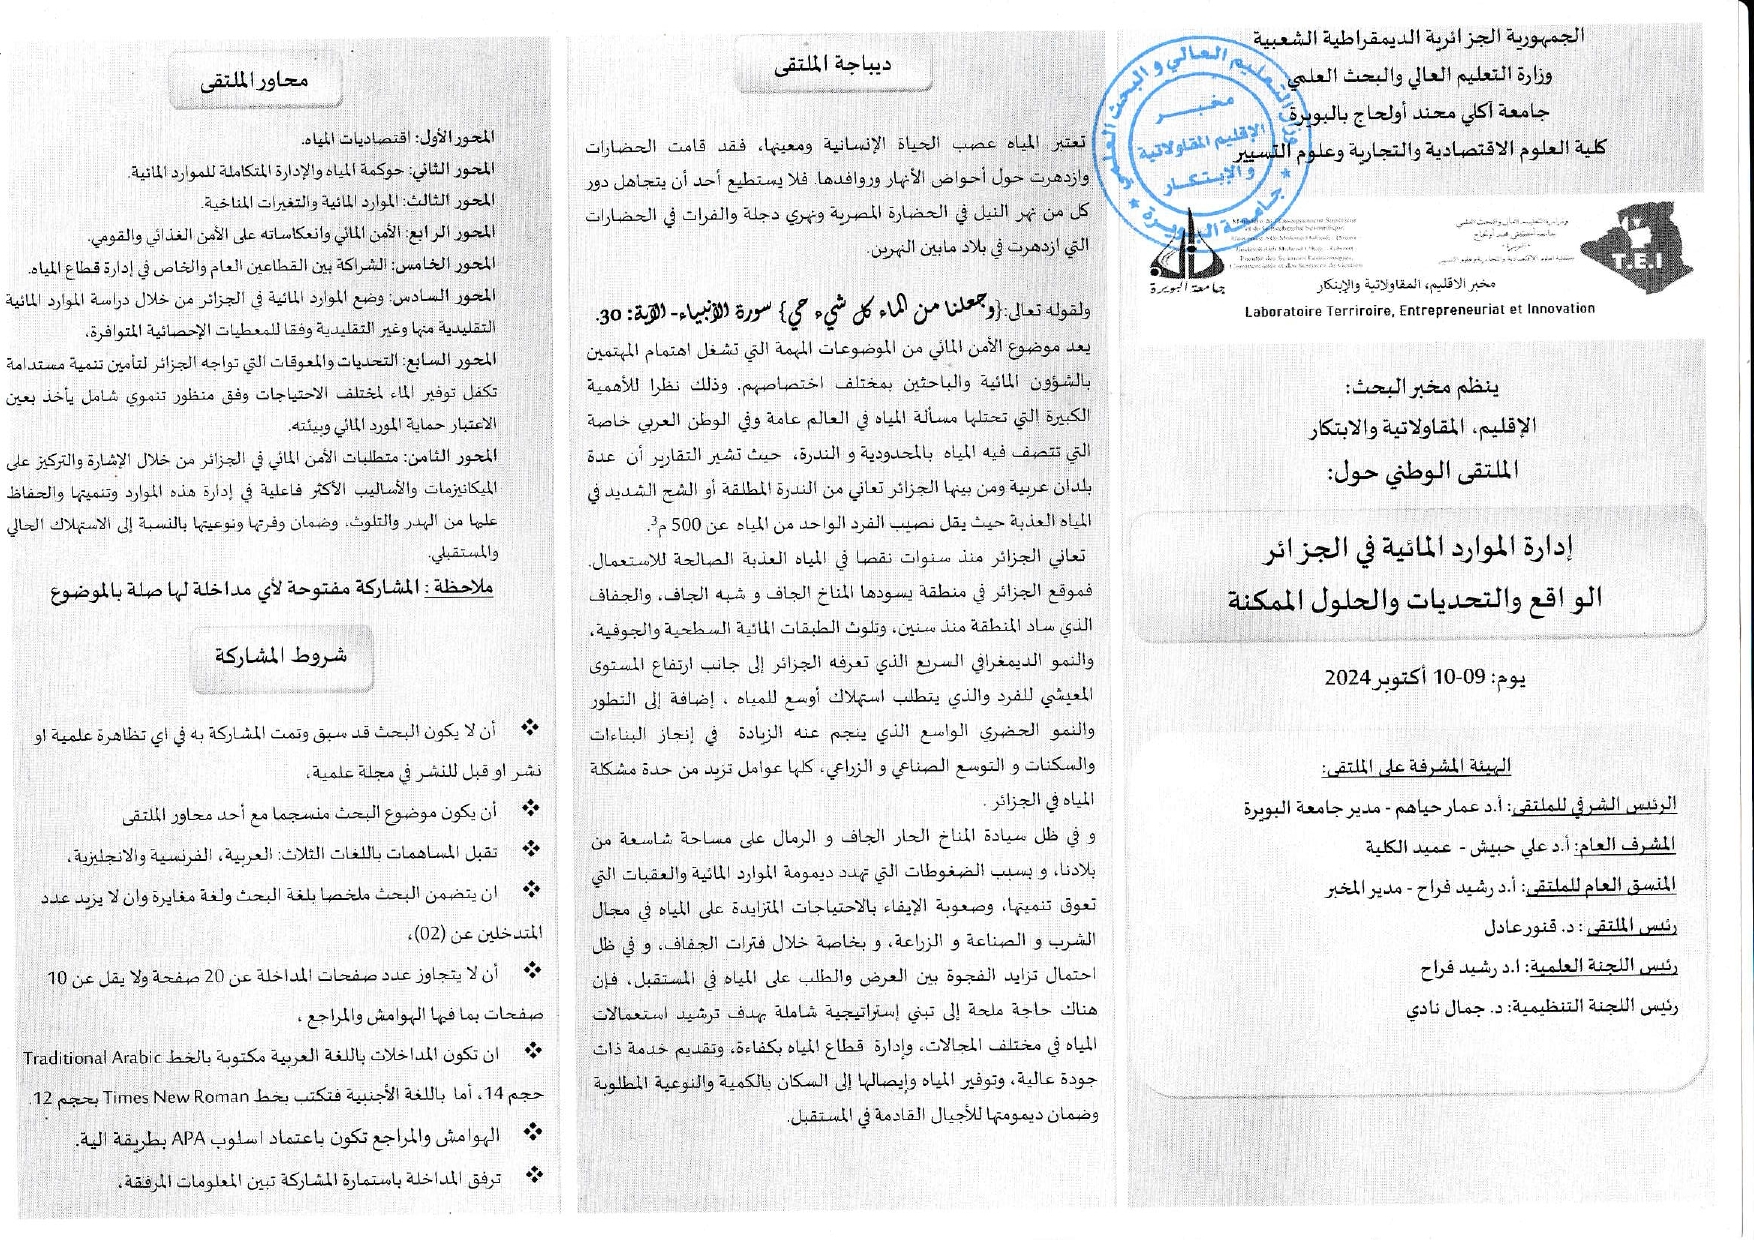 الجمهورية الجزائرية الديمقراطية الشعبية
وزارة التعليم العالي والبحث العلمي
جامعة آكلي محند أولحاج بالبويرة
كلية العلوم الاقتصادية والتجارية وعلوم التسيير
وزارة التعليم العالي و البحث العلمي
مخبر
الإقليم المقاولاتية
والإبتكار
جامعة البويرة
جامعة البويرة
T.E.I
مخبر الاقليم، المقاولاتية والإبتكار
Laboratoire Terriroire, Entrepreneuriat et Innovation
ينظم مخبر البحث:
الإقليم، المقاولاتية والابتكار
الملتقى الوطني حول:
إدارة الموارد المائية في الجزائر
الواقع والتحديات والحلول الممكنة
يوم: 09-10 أكتوبر 2024
الهيئة المشرفة على الملتقى:
الرئيس الشرفي للملتقى: أ.د عمار حياهم - مدير جامعة البويرة
المشرف العام: أ.د علي حبيش - عميد الكلية
المنسق العام للملتقى: أ.د رشيد فراح - مدير المخبر
رئيس الملتقى : د. قنور عادل
رئيس اللجنة العلمية: ا.د رشيد فراح
رئيس اللجنة التنظيمية: د. جمال نادي
ديباجة الملتقى
تعتبر المياه عصب الحياة الإنسانية ومعينها، فقد قامت الحضارات
وازدهرت حول أحواض الأنهار وروافدها. فلا يستطيع أحد أن يتجاهل دور
كل من نهر النيل في الحضارة المصرية ونهري دجلة والفرات في الحضارات
التي ازدهرت في بلاد مابين النهرين.
ولقوله تعالى:{وجعلنا من الماء كل شيء حي} سورة الأنبياء- الآية: 30.
يعد موضوع الأمن المائي من الموضوعات المهمة التي تشغل اهتمام المهتمين
بالشؤون المائية والباحثين بمختلف اختصاصهم. وذلك نظرا للأهمية
الكبيرة التي تحتلها مسألة المياه في العالم عامة وفي الوطن العربي خاصة
التي تتصف فيه المياه بالمحدودية و الندرة، حيث تشير التقارير أن عدة
بلدان عربية ومن بينها الجزائر تعاني من الندرة المطلقة أو الشح الشديد في
المياه العذبة حيث يقل نصيب الفرد الواحد من المياه عن 500 م³.
تعاني الجزائر منذ سنوات نقصا في المياه العذبة الصالحة للاستعمال.
فموقع الجزائر في منطقة يسودها المناخ الجاف و شبه الجاف، والجفاف
الذي ساد المنطقة منذ سنين، وتلوث الطبقات المائية السطحية والجوفية،
والنمو الديمغرافي السريع الذي تعرفه الجزائر إلى جانب ارتفاع المستوى
المعيشي للفرد والذي يتطلب استهلاك أوسع للمياه ، إضافة إلى التطور
والنمو الحضري الواسع الذي ينجم عنه الزيادة في إنجاز البناءات
والسكنات و التوسع الصناعي و الزراعي، كلها عوامل تزيد من حدة مشكلة
المياه في الجزائر .
و في ظل سيادة المناخ الحار الجاف و الرمال على مساحة شاسعة من
بلادنا، و بسبب الضغوطات التي تهدد ديمومة الموارد المائية والعقبات التي
تعوق تنميتها، وصعوبة الإيفاء بالاحتياجات المتزايدة على المياه في مجال
الشرب و الصناعة و الزراعة، و بخاصة خلال فترات الجفاف، و في ظل
احتمال تزايد الفجوة بين العرض والطلب على المياه في المستقبل، فإن
هناك حاجة ملحة إلى تبني إستراتيجية شاملة بهدف ترشيد استعمالات
المياه في مختلف المجالات، وإدارة قطاع المياه بكفاءة، وتقديم خدمة ذات
جودة عالية، وتوفير المياه وإيصالها إلى السكان بالكمية والنوعية المطلوبة
وضمان ديمومتها للأجيال القادمة في المستقبل.
محاور الملتقى
المحور الأول: اقتصاديات المياه.
المحور الثاني: حوكمة المياه والإدارة المتكاملة للموارد المائية.
المحور الثالث: الموارد المائية والتغيرات المناخية.
المحور الرابع: الأمن المائي وانعكاساته على الأمن الغذائي والقومي.
المحور الخامس: الشراكة بين القطاعين العام والخاص في إدارة قطاع المياه.
المحور السادس: وضع الموارد المائية في الجزائر من خلال دراسة الموارد المائية
التقليدية منها وغير التقليدية وفقا للمعطيات الإحصائية المتوافرة،
المحور السابع: التحديات والمعوقات التي تواجه الجزائر لتأمين تنمية مستدامة
تكفل توفير الماء لمختلف الاحتياجات وفق منظور تنموي شامل يأخذ بعين
الاعتبار حماية المورد المائي وبيئته.
المحور الثامن: متطلبات الأمن المائي في الجزائر من خلال الإشارة والتركيز على
الميكانيزمات والأساليب الأكثر فاعلية في إدارة هذه الموارد وتنميتها والحفاظ
عليها من الهدر والتلوث، وضمان وفرتها ونوعيتها بالنسبة إلى الاستهلاك الحالي
والمستقبلي.
ملاحظة : المشاركة مفتوحة لأي مداخلة لها صلة بالموضوع
شروط المشاركة
❖ أن لا يكون البحث قد سبق وتمت المشاركة به في اي تظاهرة علمية او
نشر او قبل للنشر في مجلة علمية،
❖ أن يكون موضوع البحث منسجما مع أحد محاور الملتقى
❖ تقبل المساهمات باللغات الثلاث: العربية، الفرنسية والانجليزية،
❖ ان يتضمن البحث ملخصا بلغة البحث ولغة مغايرة وان لا يزيد عدد
المتدخلين عن (02)،
❖ أن لا يتجاوز عدد صفحات المداخلة عن 20 صفحة ولا يقل عن 10
صفحات بما فيها الهوامش والمراجع ،
❖ ان تكون المداخلات باللغة العربية مكتوبة بالخط Traditional Arabic
حجم 14، أما باللغة الأجنبية فتكتب بخط Times New Roman بحجم 12.
❖ الهوامش والمراجع تكون باعتماد اسلوب APA بطريقة الية.
❖ ترفق المداخلة باستمارة المشاركة تبين المعلومات المرفقة،